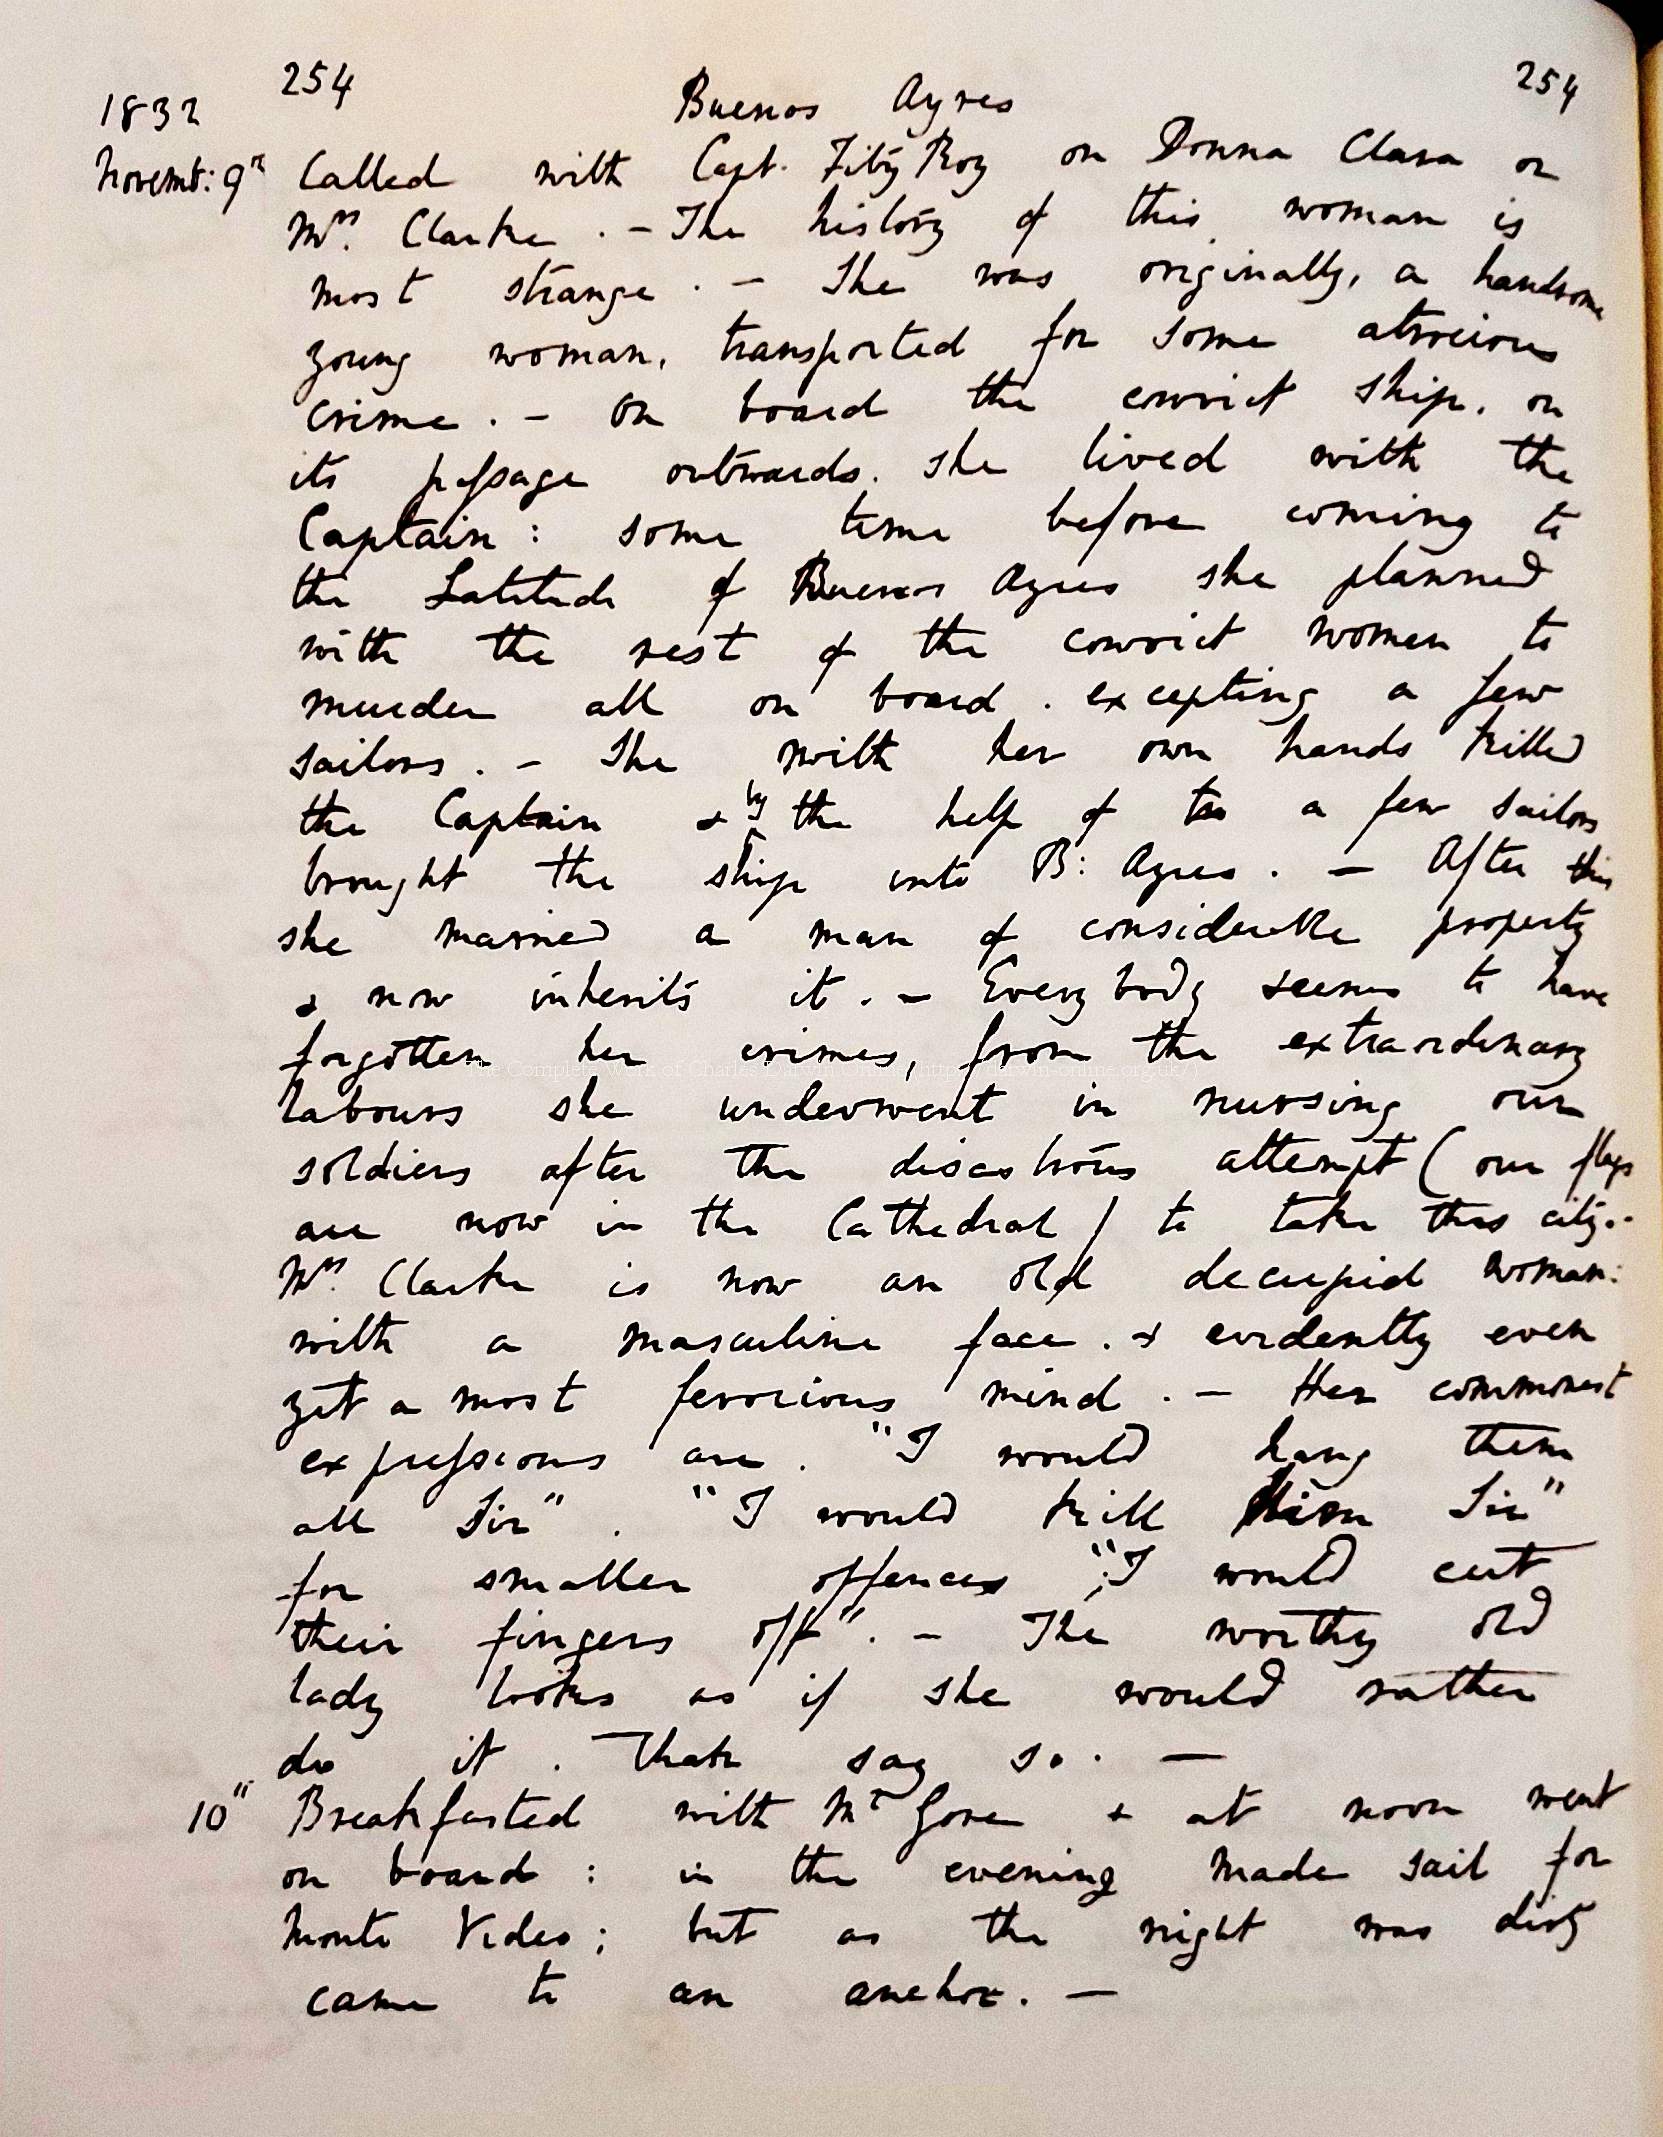 254 Buenos Ayres 254
1832
Novemb: 9th Called with Capt. FitzRoy on Donna Clara or
Mrs. Clarke. — The history of this woman is
most strange. — She was originally, a handsome
young woman, transported for some atrocious
crime. — On board the convict ship, on
its passage outwards, she lived with the
Captain: some time before coming to
the Latitude of Buenos Ayres she planned
with the rest of the convict women to
murder all on board. excepting a few
sailors. — She with her own hands killed
the Captain & by the help of a few sailors
brought the ship into B: Ayres. — After this
she married a man of considerable property
& now inherits it. — Everybody seems to have
forgotten her crimes, from the extraordinary
labours she underwent in nursing our
soldiers after the disastrous attempt (our flags
are now in the Cathedral) to take this city. -
Mrs. Clarke is now an old decrepid woman:
with a masculine face. & evidently even
yet a most ferocious mind. — Her commonest
expressions are. "I would hang them
all Sir". "I would kill him Sir"
for smaller offences; "I would cut
their fingers off". — The worthy old
lady looks as if she would rather
do it. than say so. —
10" Breakfasted with Mr Gore & at noon went
on board: in the evening made sail for
Monte Video; but as the night was dirty
came to an anchor. —
The Complete Work of Charles Darwin Online (http://darwin-online.org.uk/)